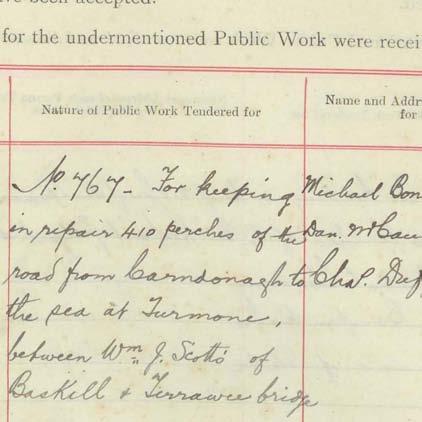 have been accepted.
for the undermentioned Public Work were recei
Nature of Public Work Tendered for
Name and Addr
for
No. 767 - For keeping
in repair 410 perches of the
road from Carndonagh to
the sea at Turmone,
between Wm J. Scott's of
Baskill & Tirrawee bridge
Michael Bon
Dan. McCau
Chas. Duf